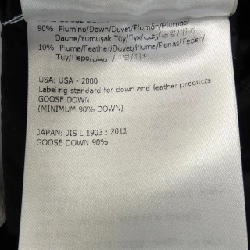 90% Piumino/Down/Duvet/
10% Piume/Feather/Duvet/Plume/Penas/Feder/
USA: USA - 2000
Labeling standard for down and feather products
GOOSE DOWN
(MINIMUM 90% DOWN)
JAPAN: JIS L 1903 : 2011
GOOSE DOWN 90%